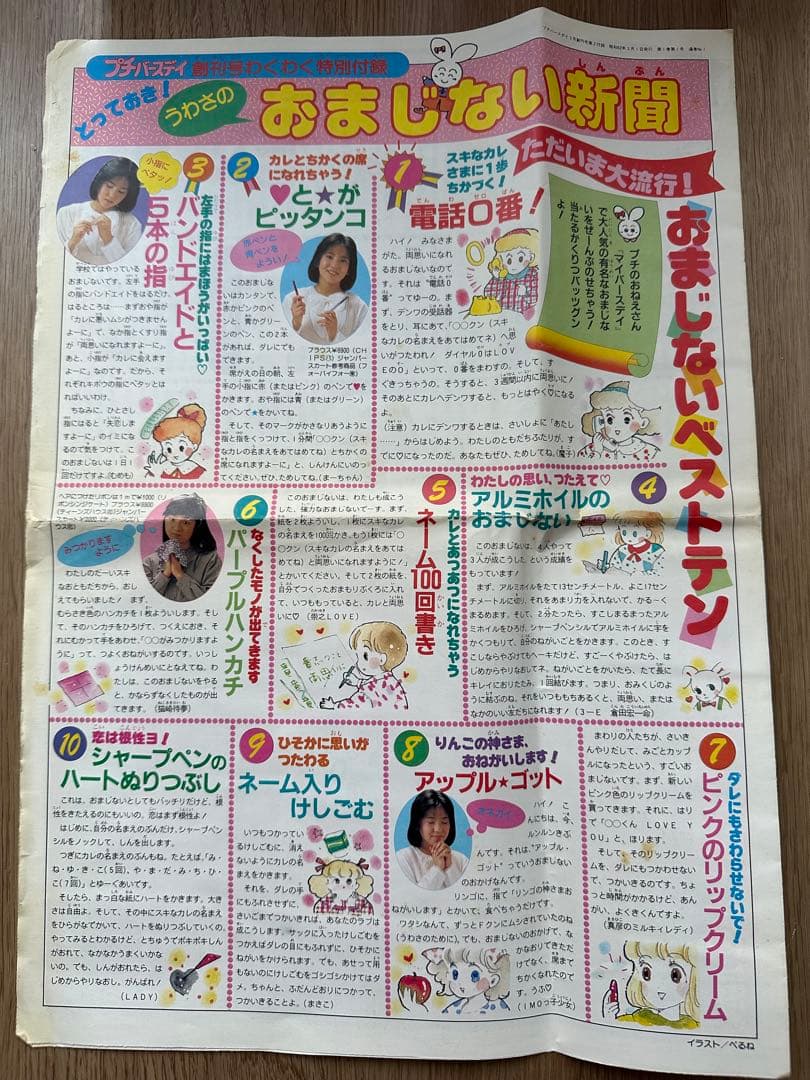 プチバースデイ 創刊号わくわく特別付録
とっておき!
うわさの
おまじない新聞
しんぶん
ただいま大流行!
おまじないベストテン
プチのおねえさん
『マイバースデイ』
で大人気の有名なおまじな
いをぜーんぶのせちゃう!
当たるかくりつバッツグン
よ!
1
スキなカレ
さまに1歩
ちかづく!
電話0番!
ハイ! みなさま
がた。両思いになれ
るおまじないなので
す。それは“電話0
番”ってゆーの。ま
ず、デンワの受話器
をとり、耳にあて、「○○クン(スキ
なカレの名まえをあてはめてネ)へ思
いがつたわれ! ダイヤル0はLOV
Eの0」といって、0番をまわすの。そして、す
ぐきっちゃうの。そうすると、3週間以内に両思いに!
そのあとにカレへデンワすると、もっとはやく♡になる
よ。
(注意)カレにデンワするときは、さいしょに「あたし
……」からはじめよう。わたしのともだちふたりが、す
でに♡になったのだ。あなたもぜひ、ためしてね。(魔子)
2
カレとちかくの席
になれちゃう!
♥と★が
ピッタンコ
赤ペンと
青ペンを
ようい!
このおまじな
いはカンタンで、
赤かピンクのペ
ンと、青かグリー
ンのペン、この2本
があれば、ダレにでも
できます。
ブラウス¥6900(CH
IPS(1)ジャンパー
スカート参考商品(フ
ォーバイフォー蕙)
席がえの日の朝、左
手の小指に赤(またはピンク)のペンで♥を
かきます。おや指には青(またはグリーン)
のペンで★をかいてね。
そして、そのマークがかさなりあうように
指と指をくっつけて、1分間「○○クン(ス
キなカレの名まえをあてはめてね)とちかく
の席になれますよーに」と、しんけんにいの
ってください。ぜひ、ためしてね。(まーちゃん)
3
左手の指にはまほうがいっぱい♡
バンドエイドと
5本の指
小指に
ペタッ!
学校ではやっている
おまじないです。左手
の指にバンドエイドをはるだけ。
はるところは――まずおや指が
「カレに悪いムシがつきません
よーに」で、なか指とくすり指
が「両思いになれますよーに」。
あと、小指が「カレに会えます
よーに」なのです。だから、そ
れぞれキボウの指にペタッとは
ればいいわけ。
ちなみに、ひとさし
指にはると「失恋しま
すよーに」のイミにな
るので気をつけて。こ
のおまじないは1日1
回だけですよ。(むめも)
4
わたしの思い、つたえて♡
アルミホイルの
おまじない
このおまじないは、4人やって
3人が成こうした という成績を
もっています!
まず、アルミホイルをたて13センチメートル、よこ17セン
チメートルに切り、それをあまり力を入れないで、かる～く
まるめます。そして、2分たったら、すこしまるまったアル
ミホイルをひろげ、シャープペンシルでアルミホイルに字を
かくつもりで、自分のねがいごとをかきます。このとき、す
こしならやぶけてもヘーキだけど、すごーくやぶけたら、は
じめからやりなおしてネ。ねがいごとをかいたら、たて長に
キレイにおりたたみ、1回結びます。つまり、おみくじのよ
うに結ぶのね。それをいつももちあるくと、両思い、または
なかのいい友だちになれます!(3―E 倉田宏一命)
5
カレとあつあつになれちゃう
ネーム100回書き
このおまじないは、わたしも成こう
した、強力なおまじないでーす。まず、
紙を2枚よういし、1枚にスキなカレ
の名まえを100回かき、もう1枚には「○
○クン(スキなカレの名まえをあては
めてね)と両思いになれますように!」
とかいてください。そして2枚の紙を、
自分でつくったおまもりぶくろに入れ
て、いつももっていると、カレと両思
いに♡(崇之LOVE)
6
なくしたモノが出てきます
パープルハンカチ
みつかります
ように
ヘアにつけたリボンは1mで¥1000(リ
ボンシンジケート)ブラウス¥8900
わたしのだーいスキ
なおともだちから、おし
えてもらいました! まず、
むらさき色のハンカチを1枚よういします。そし
て、そのハンカチをひろげて、つくえにおき、そ
れにむかって手をあわせ、「○○がみつかりますよ
うに」って、つよくおねがいするのです。いっし
ょうけんめいにとなえてね。わ
たしは、このおまじないをやる
と、かならずなくしたものが出
てきます。(猫崎待季)
7
ダレにもさわらせないで!
ピンクのリップクリーム
まわりの人たちが、さいき
んやりだして、みごとカップ
ルになったという、すごいお
まじないです。まず、新しい
ピンク色のリップクリームを
買ってきます。それに、はり
で「○○くん LOVE Y
OU」と、ほります。
そして、そのリップクリー
ムを、ダレにもつかわせない
で、つかいきるのです。ちょ
っと時間がかかるけど、あん
がい、よくきくんですよ。
(真彦のミルキィレディ)
8
りんごの神さま、
おねがいします!
アップル★ゴット
オネガイ
ハイ! こ
んにちは、今、
ルンルンきぶ
んです。それは、“アップル・
ゴット”っていうおまじない
のおかげなんです。
リンゴに、指で「リンゴの神さまお
ねがいします」とかいて、食べちゃうだけです。
ワタシなんて、ずっとドクンにムシされていたのね
(うわさのために)。でも、おまじないのおかげで、な
かなおりできただ
けでなく、席まで
ちかくなれたので
す。うふ♡
(IMOっ子少女)
9
ひそかに思いが
つたわる
ネーム入り
けしごむ
いつもつかってい
るけしごむに、消え
ないようにカレの名
まえをかきます。
それを、ダレの手
にもふれさせずに、
さいごまでつかいきれば、あなたのラブは
成こうします。サックに入ったけしごむを
つかえばダレの目にもふれずに、ひそかに
ねがいをかけられます。でも、あせって用
もないのにけしごむをゴシゴシかけてはダ
メ。ちゃんと、ふだんどおりにつかって、
つかいきることよ。(まさこ)
10
恋は根性ヨ!
シャープペンの
ハートぬりつぶし
これは、おまじないとしてもバッチリだけど、根
性をきたえるのにもいいの。恋はまず根性よ!
はじめに、自分の名まえのぶんだけ、シャープペン
シルをノックして、しんを出します。
つぎにカレの名まえのぶんもね。たとえば、「み・
ね・ゆ・き・こ(5回)、や・ま・だ・み・ち・ひ・
こ(7回)」とゆーぐあいです。
そしたら、まっ白な紙にハートをかきます。大き
さは自由よ。そして、その中にスキなカレの名まえ
をひらがなでかいて、ハートをぬりつぶしていくの。
やってみるとわかるけど、とちゅうでポキポキしん
がおれて、なかなかうまくいかな
いの。でも、しんがおれたら、は
じめからやりなおし。がんばれ!
(LADY)
イラスト/ぺるね